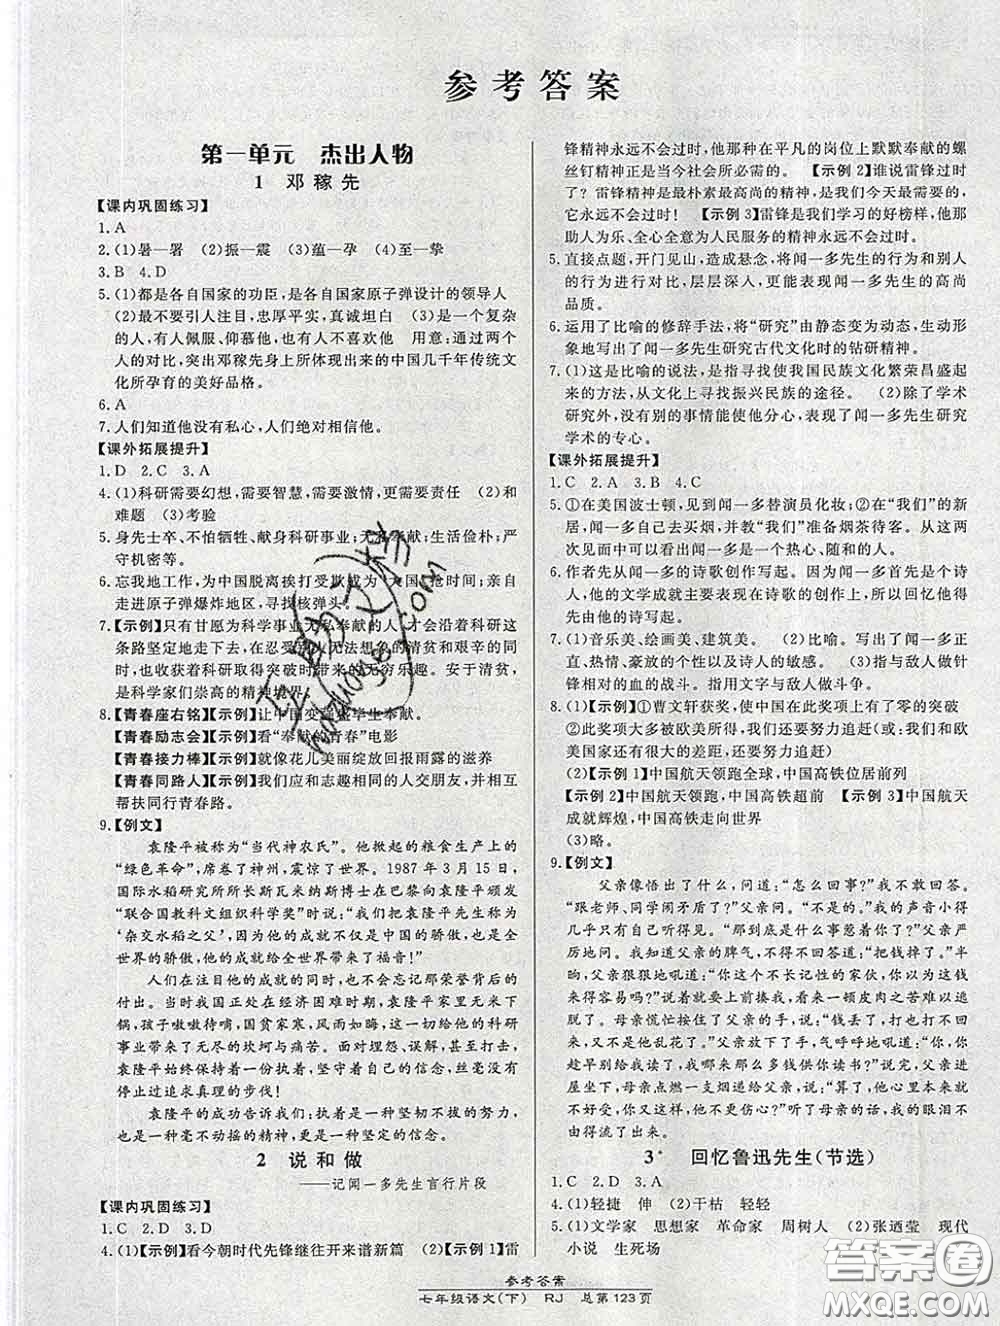 参考答案
第一单元 杰出人物
1 邓稼先
【课内巩固练习】
1. A
2. (1)暑—署 (2)振—震 (3)蕴—孕 (4)至—挚
3. B 4. D
5. (1)都是各自国家的功臣,是各自国家原子弹设计的领导人
(2)最不要引人注目,忠厚平实,真诚坦白 (3)是一个复杂
的人,有人佩服、仰慕他,也有人不喜欢他 用意:通过两个
人的对比,突出邓稼先身上所体现出来的中国几千年传统文
化所孕育的美好品格。
6. A
7. 人们知道他没有私心,人们绝对相信他。
【课外拓展提升】
1. D 2. C 3. A
4. (1)科研需要幻想,需要智慧,需要激情,更需要责任 (2)和
难题 (3)考验
5. 身先士卒、不怕牺牲、献身科研事业;无私奉献;生活俭朴;严
守机密等。
6. 忘我地工作,为中国脱离挨打受欺成为大国抢时间;亲自
走进原子弹爆炸地区,寻找核弹头。
7. 【示例】只有甘愿为科学事业无私奉献的人,才会沿着科研这
条路坚定地走下去,在奉献中收获无法想象的清贫与寂
寞,也收获着科研取得突破时带来的无穷乐趣。安于清贫,
是科学家们崇高的精神境界。
8. 【青春座右铭】【示例】让中国变强盛毕生奉献。
【青春励志会】【示例】看“奉献的青春”电影
【青春接力棒】【示例】就像花儿美丽绽放回报雨露的滋养
【青春同路人】【示例】我们应和志趣相同的人交朋友,并相互
帮扶同行青春路。
9. 【例文】
袁隆平被称为“当代神农氏”。他掀起的粮食生产上的
“绿色革命”,席卷了神州,震惊了世界。1987年3月15日,
国际水稻研究所所长斯瓦米纳斯博士在巴黎向袁隆平颁发
“联合国教科文组织科学奖”时说:“我们把袁隆平先生称为
‘杂交水稻之父’,因为他的成就不仅是中国的骄傲,也是全世
界的骄傲,他的成就给全世界带来了福音!”
人们在注目他的成就的同时,也不会忘记那荣誉背后的
付出。当时我国正处在经济困难时期,袁隆平家里无米下
锅,孩子嗷嗷待哺,国贫家寒,风雨如晦,这一切给他的科研
事业带来了无尽的坎坷与痛苦。面对埋怨、误解,甚至打击,
袁隆平始终保持着一份执着,一种坚定的信念,丝毫没有
停止过追求真理的步伐!
袁隆平的成功告诉我们:执着是一种坚韧不拔的努力,
也是一种毫不动摇的精神,更是一种坚定的信念。
2 说和做
——记闻一多先生言行片段
【课内巩固练习】
1. C 2. D 3. D
4. (1)【示例】看今朝时代先锋继往开来谱新篇 (2)【示例1】雷
锋精神永远不会过时,他那种在平凡的岗位上默默奉献的螺
丝钉精神正是当今社会所必需的。 【示例2】谁说雷锋过时
了?雷锋精神是最朴素最高尚的精神,是我们今天最需要的,
它永远不会过时! 【示例3】雷锋是我们学习的好榜样,他那
助人为乐、全心全意为人民服务的精神永远不会过时。
5. 直接点题,开门见山,造成悬念,将闻一多先生的行为和别人
的行为进行对比,层层深入,更有力地表现出闻一多的高尚
品质。
6. 运用了比喻的修辞手法,将“研究”由静态变为动态,生动形
象地写出了闻一多先生研究古代文化时的钻研精神。
7. (1)这是比喻的说法,是指寻找使我国民族文化繁荣昌盛起
来的方法,从文化上寻找振兴民族的途径。 (2)除了学术
研究外,没有别的事情能使他分心,突出了闻一多先生研究
学术的专心。
【课外拓展提升】
1. C 2. A 3. B 4. C
5. ①在美国波士顿,见到闻一多替演员化妆;②在“我们”的新
居,闻一多自己去买烟,并教“我们”准备烟茶待客。从这两
次见面中可以看出闻一多是一个热心、随和的人。
6. 作者先从闻一多的诗歌创作写起。因为闻一多首先是个诗
人,他的文学成就主要表现在诗歌的创作上,所以回忆他得
先由他的诗写起。
7. (1)音乐美、绘画美、建筑美。 (2)比喻。写出了闻一多正
直、热情、豪放的个性以及诗人的敏感。 (3)指与敌人做针
锋相对的血的战斗。指用文字与敌人做斗争。
8. (1)【示例】①曹文轩获奖,使中国在此奖项上有了零的突破
②此奖项大多被欧美所得,我们还要努力追赶(或:我们和欧
美国家还有很大的差距,还要努力追赶)
(2)【示例1】中国航天领跑全球,中国高铁位居前列
【示例2】中国航天领跑,中国高铁超前 【示例3】中国航天
成就辉煌,中国高铁走向世界
(3)略。
9. 【例文】
父亲像悟出了什么,问道:“怎么回事?”我不敢回答。
“跟老师、同学闹矛盾了?”父亲问。“不是的。”我的声音小得
几乎只有自己听得见。“那到底是什么事惹着你了?”父亲严
厉地问。我知道父亲的脾气,不得不回答道:“把钱掉了。”半
晌,父亲狠狠地吼道:“你这个不长记性的家伙,你以为这钱
来得容易吗?”说着就要上前揍我,看来一顿皮肉之苦难以逃
脱了。母亲慌忙按住了父亲的手,说:“钱丢了,打也打不回
来,又不是他乱花了。”父亲放下了手,气呼呼地吼道:“你,你
趁早别给我读了,我哪来那么多钱供你读书!”父亲气冲冲进
屋坐下,母亲点燃一支烟递给父亲,说:“算了,他不是有意
的,他心里也不好受,你也不要更伤心?”听了母亲的话,我的眼泪不由
得流了出来。
3* 回忆鲁迅先生(节选)
1. C 2. D 3. A
4. (1)轻捷 伸 (2)干枯 轻轻
5. (1)文学家 思想家 革命家 周树人 (2)张迺莹 现代
小说 生死场
参考答案
七年级语文(下) RJ 总第123页
答案圈
MXQE.COM